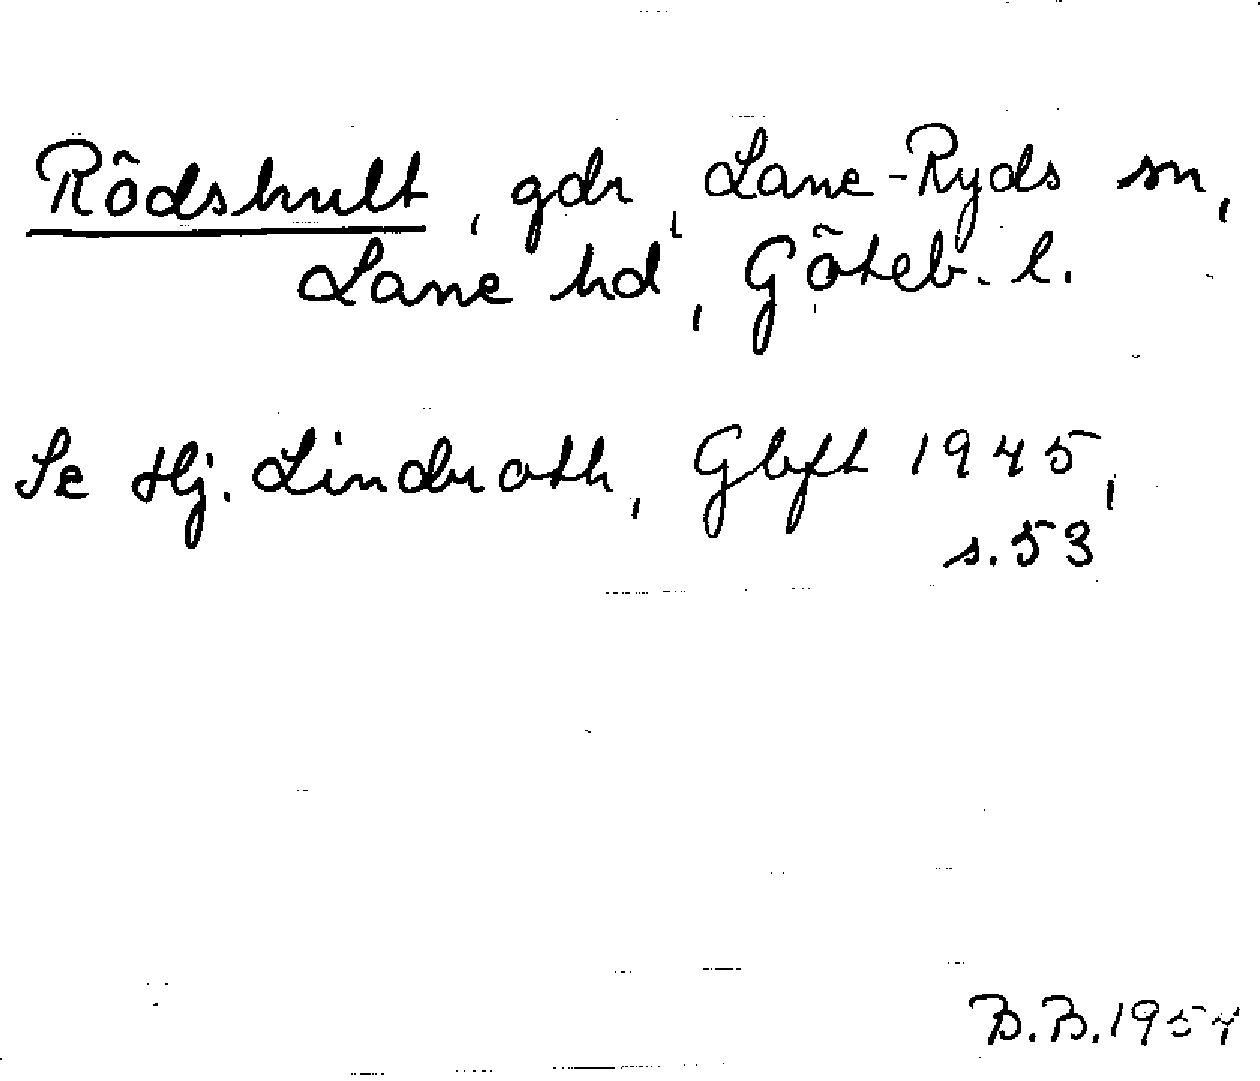 Rödshult, gdr, Lane-Ryds sn,
Lane hd, Göteb. l.
Se Hj. Lindroth, Gbft 1945,
s. 53
B.B. 1954